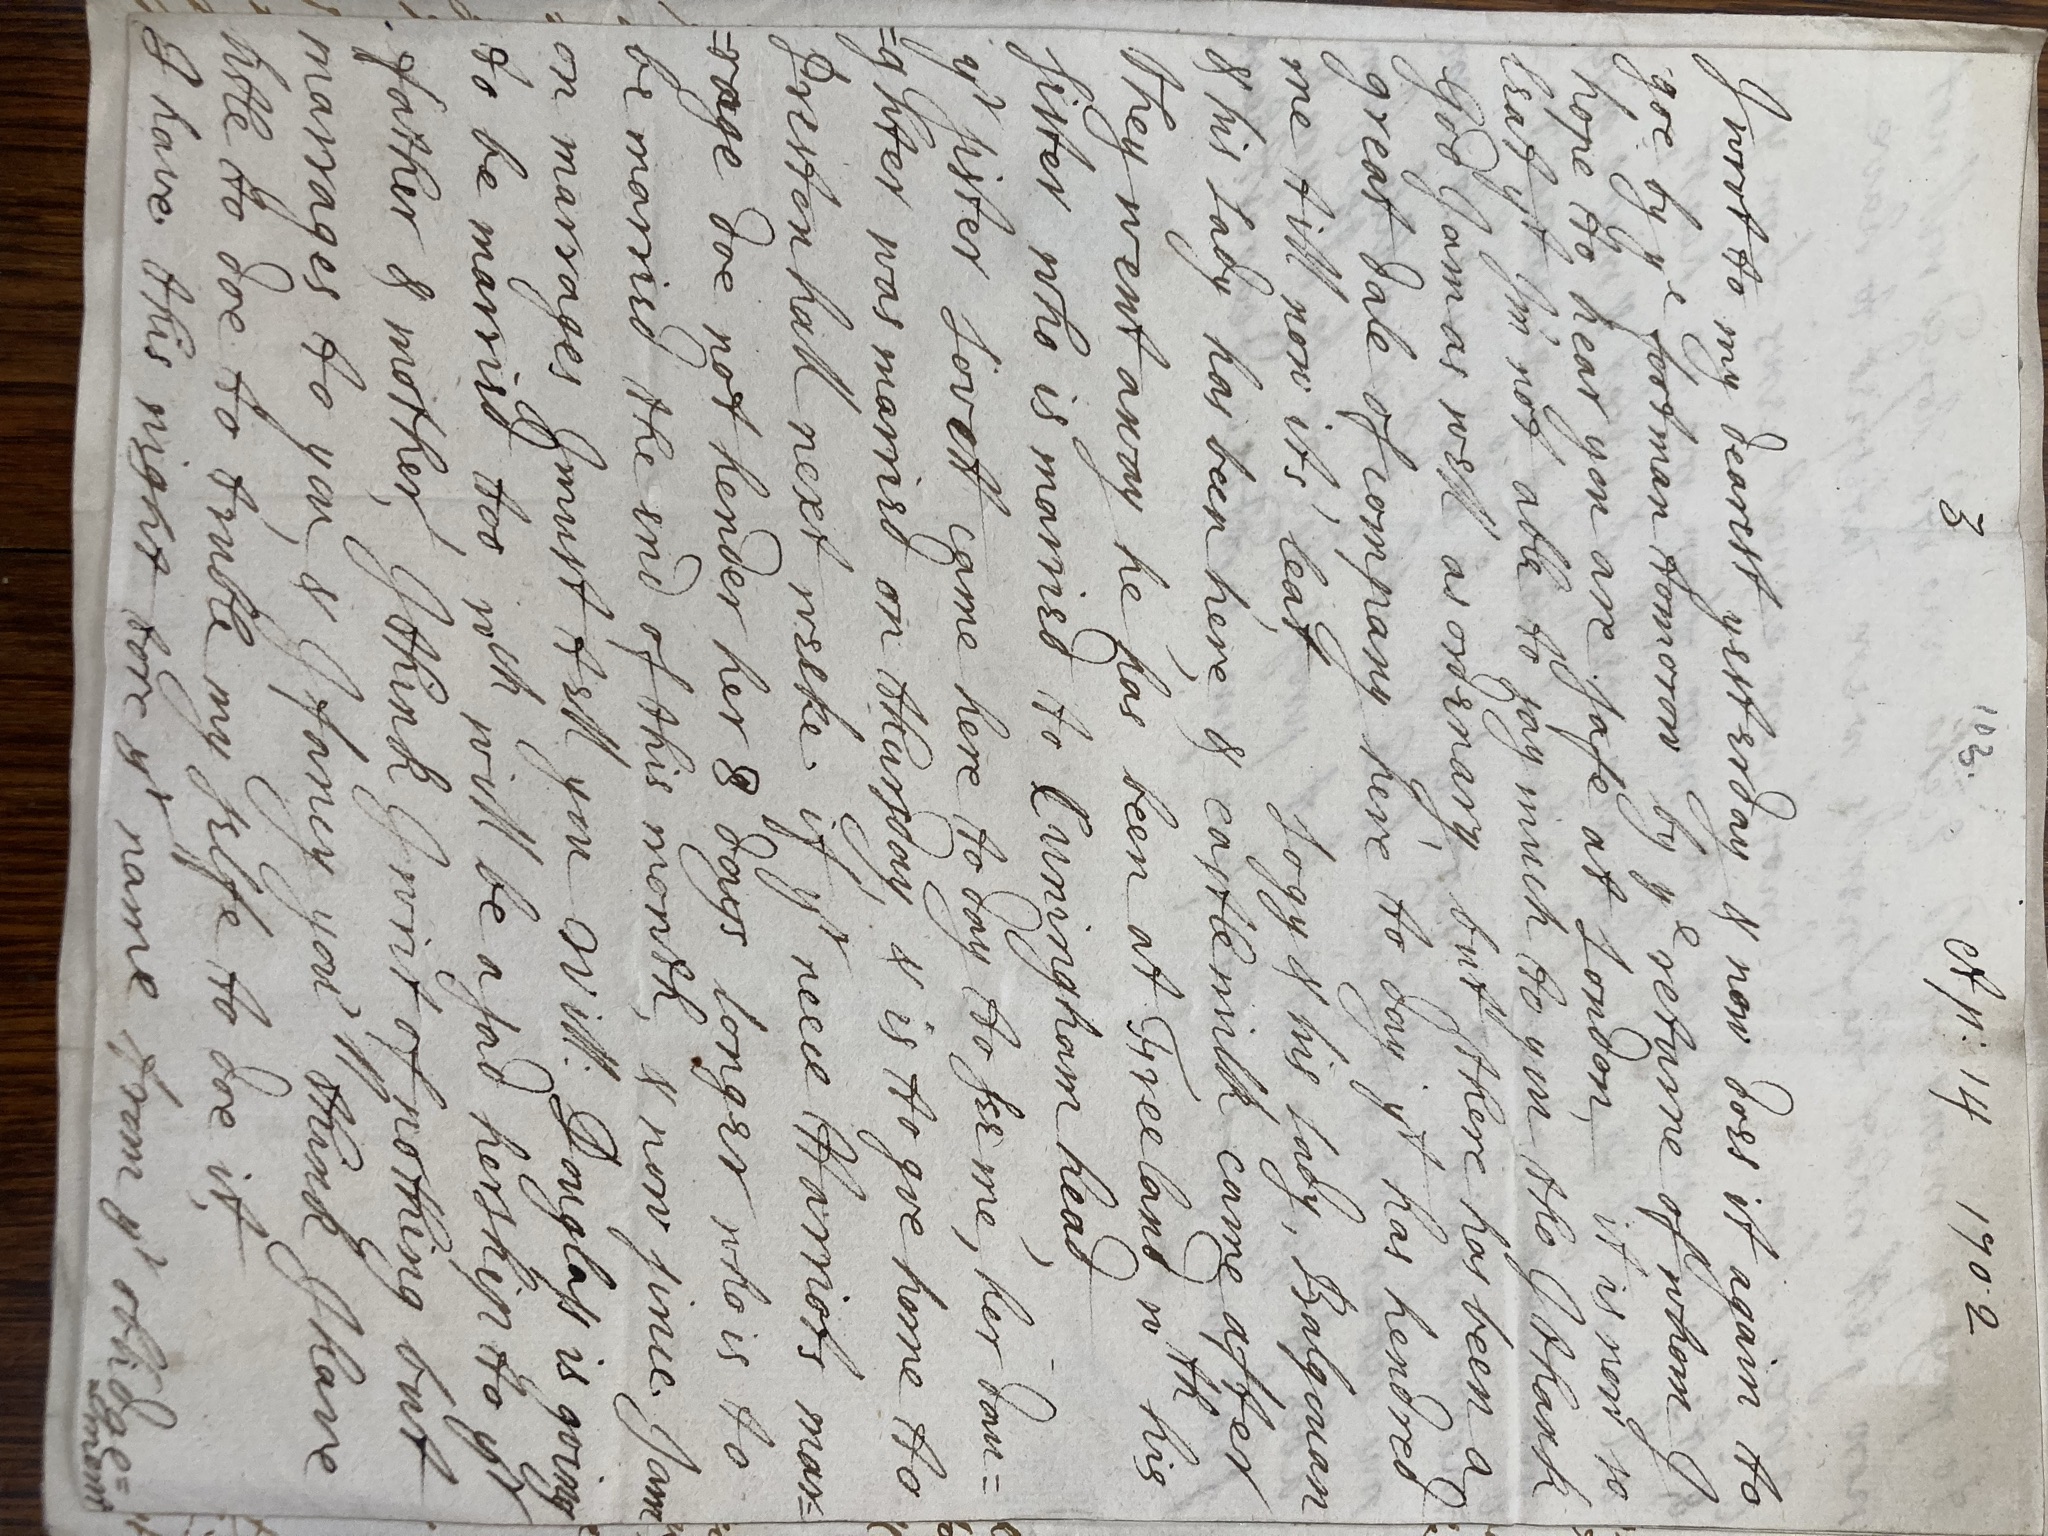 3 103. Ap: 14 1702
I wrot to my dearest yesterday & now does it again to
goe by ye footman tomorow by ye returne of whom I
hope to hear you are safe at London, it is now so
leat yt I'm not able to say much to you tho I thank
God I am as well as ordenary, but there has been a
great dale of company here to day yt has hendred
me till now its' leat, Logy & his Lady, Balgouan
& his Lady has been here, & castlemilk came after
they went away he has been at Freeland wth his
sister who is married to Cuningham head,
yr sister Lovatt came here to day to see me, her dau=
=ghter was married on thursday, & is to goe home to
Preston hall next weeke. if yr neece Harriots mar=
=rage doe not hender her 8 days longer who is to
be married the end of this month, & now since I am
on marrages I must tell you Will: Douglass is going
to be married too, wch will be a sad hership to yr
father & mother, I think I writ of nothing but
marrages to you, & I fancy you'll think I have
litle to doe to truble my selfe to doe it,
I have this night tore yr name from yr oblidge=
=ment